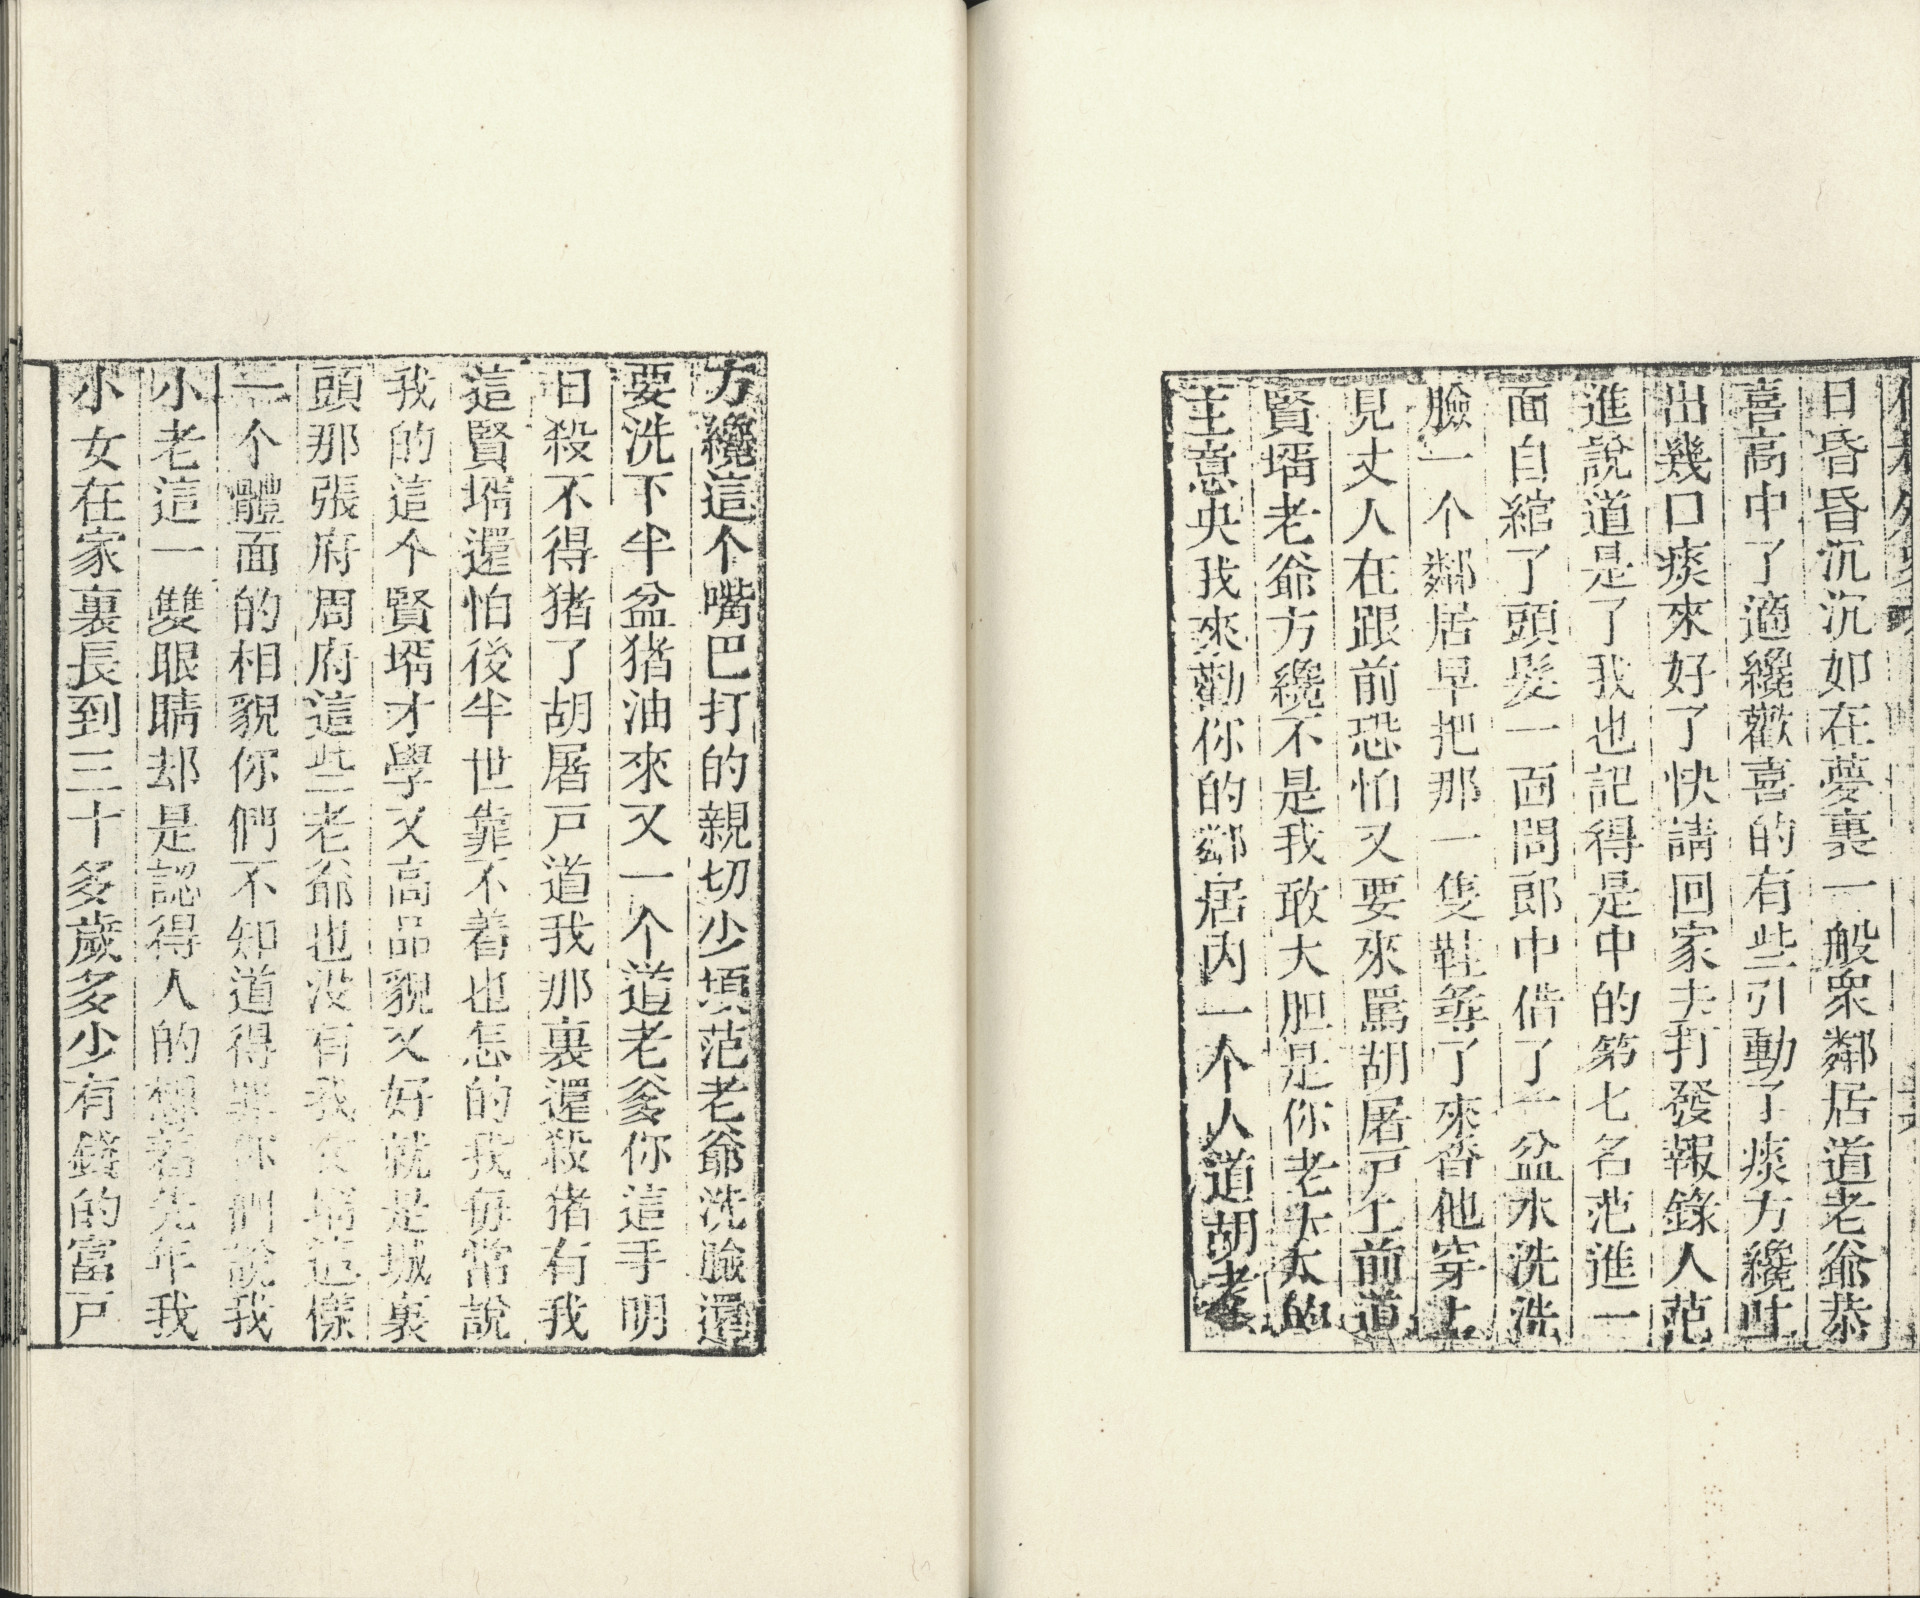 日昏昏沉沉如在夢裏一般衆鄰居道老爺恭
喜高中了適纔歡喜的有些引動了痰方纔吐
出幾口痰來好了快請回家去打發報錄人范
進說道是了我也記得是中的第七名范進一
面自綰了頭髮一面問郎中借了一盆水洗洗
臉一个鄰居早把那一隻鞋尋了來替他穿上
見丈人在跟前恐怕又要來罵胡屠戸上前道
賢壻老爺方纔不是我敢大胆是你老太太的
主意央我來勸你的鄰居內一个人道胡老
方纔這个嘴巴打的親切少頃范老爺洗臉還
要洗下半盆猪油來又一个道老爹你這手明
日殺不得猪了胡屠戸道我那裏還殺猪有我
這賢壻還怕後半世靠不着也怎的我每常說
我的這个賢壻才學又高品貌又好就是城裏
頭那張府周府這些老爺也没有我女壻這樣
一个體面的相貌你們不知道得罪你們說我
小老這一雙眼睛却是認得人的想着先年我
小女在家裏長到三十多歲多少有錢的富戸